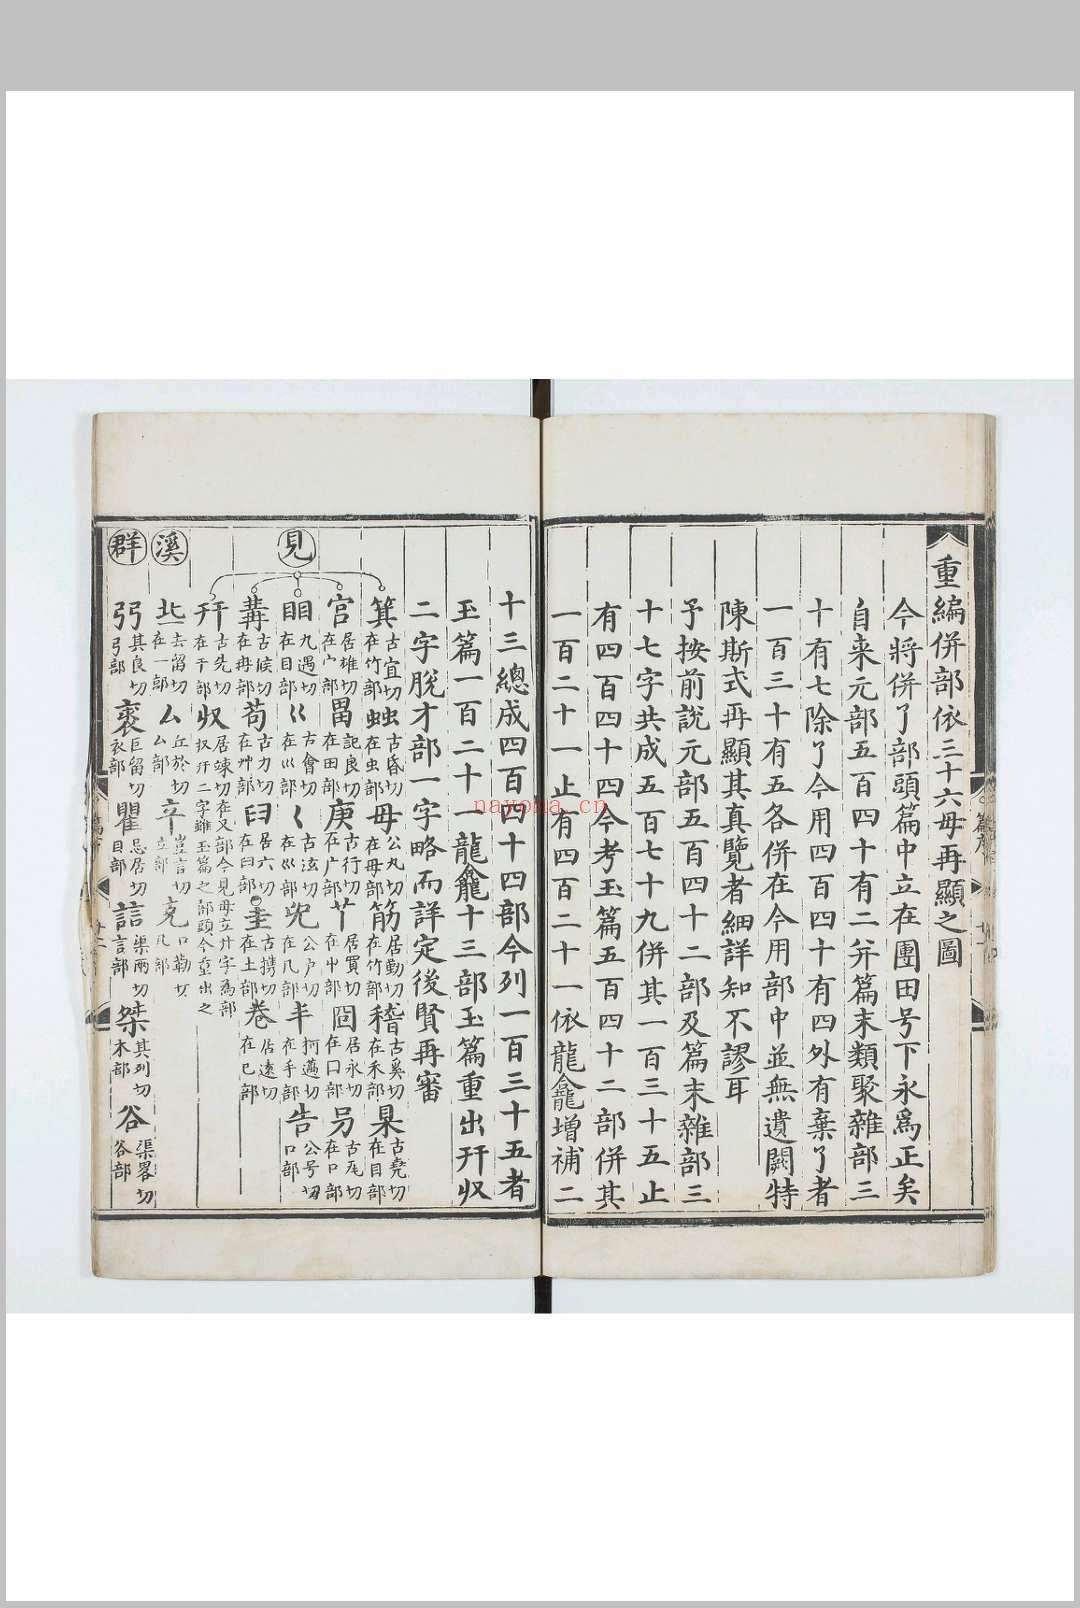 重編併部依三十六母再顯之圖
今將併了部頭篇中立在團田号下永爲正矣
自来元部五百四十有二并篇末類聚雜部三
十有七除了今用四百四十有四外有棄了者
一百三十有五各併在今用部中並無遺闕特
陳斯式再顯其真覽者細詳知不謬耳
予按前說元部五百四十二部及篇末雜部三
十七字共成五百七十九併其一百三十五止
有四百四十四今考玉篇五百四十二部併其
一百二十一止有四百二十一依龍龕增補二
十三總成四百四十四部今列一百三十五者
玉篇一百二十一龍龕十三部玉篇重出幵収
二字脫才部一字略而詳定後賢再審
見
箕古宜切在竹部䖵古昏切在虫部毋公丸切在毋部筋居勤切在竹部稽古奚切在禾部杲古堯切在目部
宫居雄切在宀部畕記良切在田部庚古行切在广部𦫳居買切在丱部囧居永切在口部叧古瓦切在口部
䀠九遇切在目部巜古會切在巛部𡿨古泫切在巛部𠑹公户切在几部丯柯邁切在手部告公号切口部
冓古候切在冉部茍古力切在艸部𦥑居六切在臼部圭古携切在土部卷居遠切在㔾部
幵古先切在干部収居竦切在又部今見母立廾字爲部収幵二字雖玉篇之部頭今重出之
溪
丠去留切在一部厶丘於切厶部䇂豈言切立部克口勒切几部
群
弜其良切弓部裘巨留切衣部瞿忌居切目部誩渠兩切言部桀其列切木部谷渠畧切谷部
nayona.cn